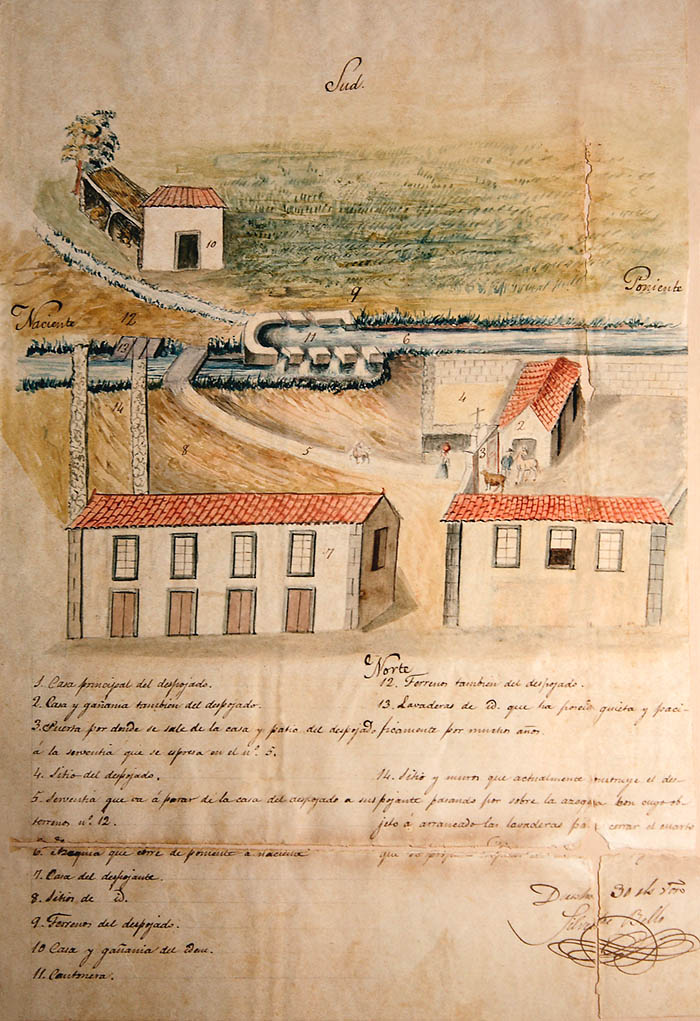 Sud.
10
9
Poniente
Naciente
12
11
6
13
4
14
2
5
3
8
7
Norte
1. Casa principal del despojado.
2. Casa y gañania tambien del despojado.
3. Puerta por donde se sale de la casa y patio del despojado
á la serventia que se espresa en el nº. 5.
4. Sitio del despojado.
5. Serventia que vá á parar de la casa del despojado a sus
terrenos nº. 12.
6. Azequia que corre de poniente á naciente
7. Casa del despojante.
8. Sitios de id.
9. Terrenos del despojado.
10 Casa y gañania del idem.
11. Cantonera.
12. Terrenos tambien del despojado.
13. Lavaderas de id. que ha poseido quieta y paci-
ficamente por muchos años.
14. Sitio y muros que actualmente construye el des-
pojante pasando por sobre la azequia con cuyo ob-
jeto á arrancado las lavaderas para cerrar el cuarto
que se
30 de
Bello